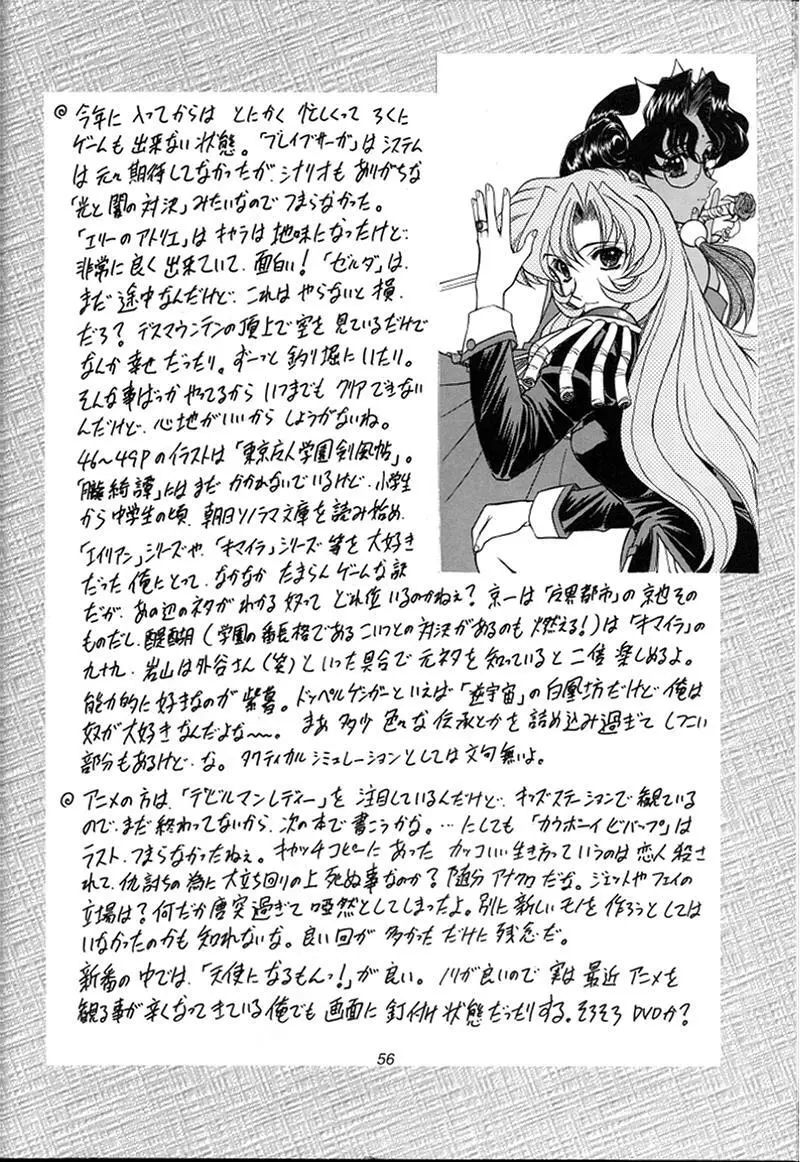 ◎ 今年に入ってからは とにかく 忙しくって ろくに
ゲームも 出来ない 状態。「ブレイブサーガ」は システム
は 元々 期待してなかったが、シナリオも ありがちな
「光と闇の対決」みたいなので つまらなかった。
「エリーのアトリエ」は キャラは 地味になったけど
非常に良く 出来ていて、面白い!「ゼルダ」は、
まだ 途中なんだけど、これは やらないと 損
だろ? デスマウンテンの頂上で空を 見ているだけで
なんか 幸せだったり。ずーっと 釣り堀にいたり。
そんな事ばっかやってるから いつまでも クリアできない
んだけど、心地がいいから しょうがないね。
46〜49Pのイラストは「東京魔人学園剣風帖」。
「朧綺譚」にはまだ かかれないでいるけど、小学生
から 中学生の頃、朝日ソノラマ文庫を読み始め、
「エイリアン」シリーズや、「キマイラ」シリーズ 等を 大好き
だった 俺にとって、なかなか たまらんゲームな訳
だが、あの辺のネタがわかる奴って どれ位 いるのかねぇ? 京一は「魔界都市」の京也その
ものだし、醍醐(学園の番長格である こいつとの対決があるのも 燃える!)は「キマイラ」の
九十九、岩山は外谷さん(笑)といった具合で 元ネタを 知っていると 二倍 楽しめるよ。
能力的に 好きなのが 紫暮。ドッペルゲンガーといえば「逆宇宙」の白凰坊だけど 俺は
奴が大好きなんだよな〜。 まあ 多少 色々な 伝承とかを 詰め込み過ぎて しつこい
部分もあるけど、な。タクティカルシミュレーションとしては 文句無いよ。
◎ アニメの方は、「デビルマンレディー」を 注目しているんだけど、キッズステーションで観ている
ので、まだ終わってないから、次の本で書こうかな。…にしても「カウボーイビバップ」は
ラスト、つまらなかったねぇ。キャッチコピーにあった カッコいい生き方っていうのは 恋人 殺さ
れて、仇討ちの為に 大立ち回りの上 死ぬ事なのか? 随分 アナクロだな。ジェットやフェイの
立場は? 何だか唐突過ぎて 唖然としてしまったよ。別に新しいモノを作ろうとしては
いなかったのかも 知れないな。良い回が 多かっただけに残念だ。
新番の中では、「天使になるもんっ!」が良い。ノリが良いので 実は 最近 アニメを
観る事が 辛くなってきている 俺でも 画面に 釘付け状態だったりする。そろそろ DVDか?
56